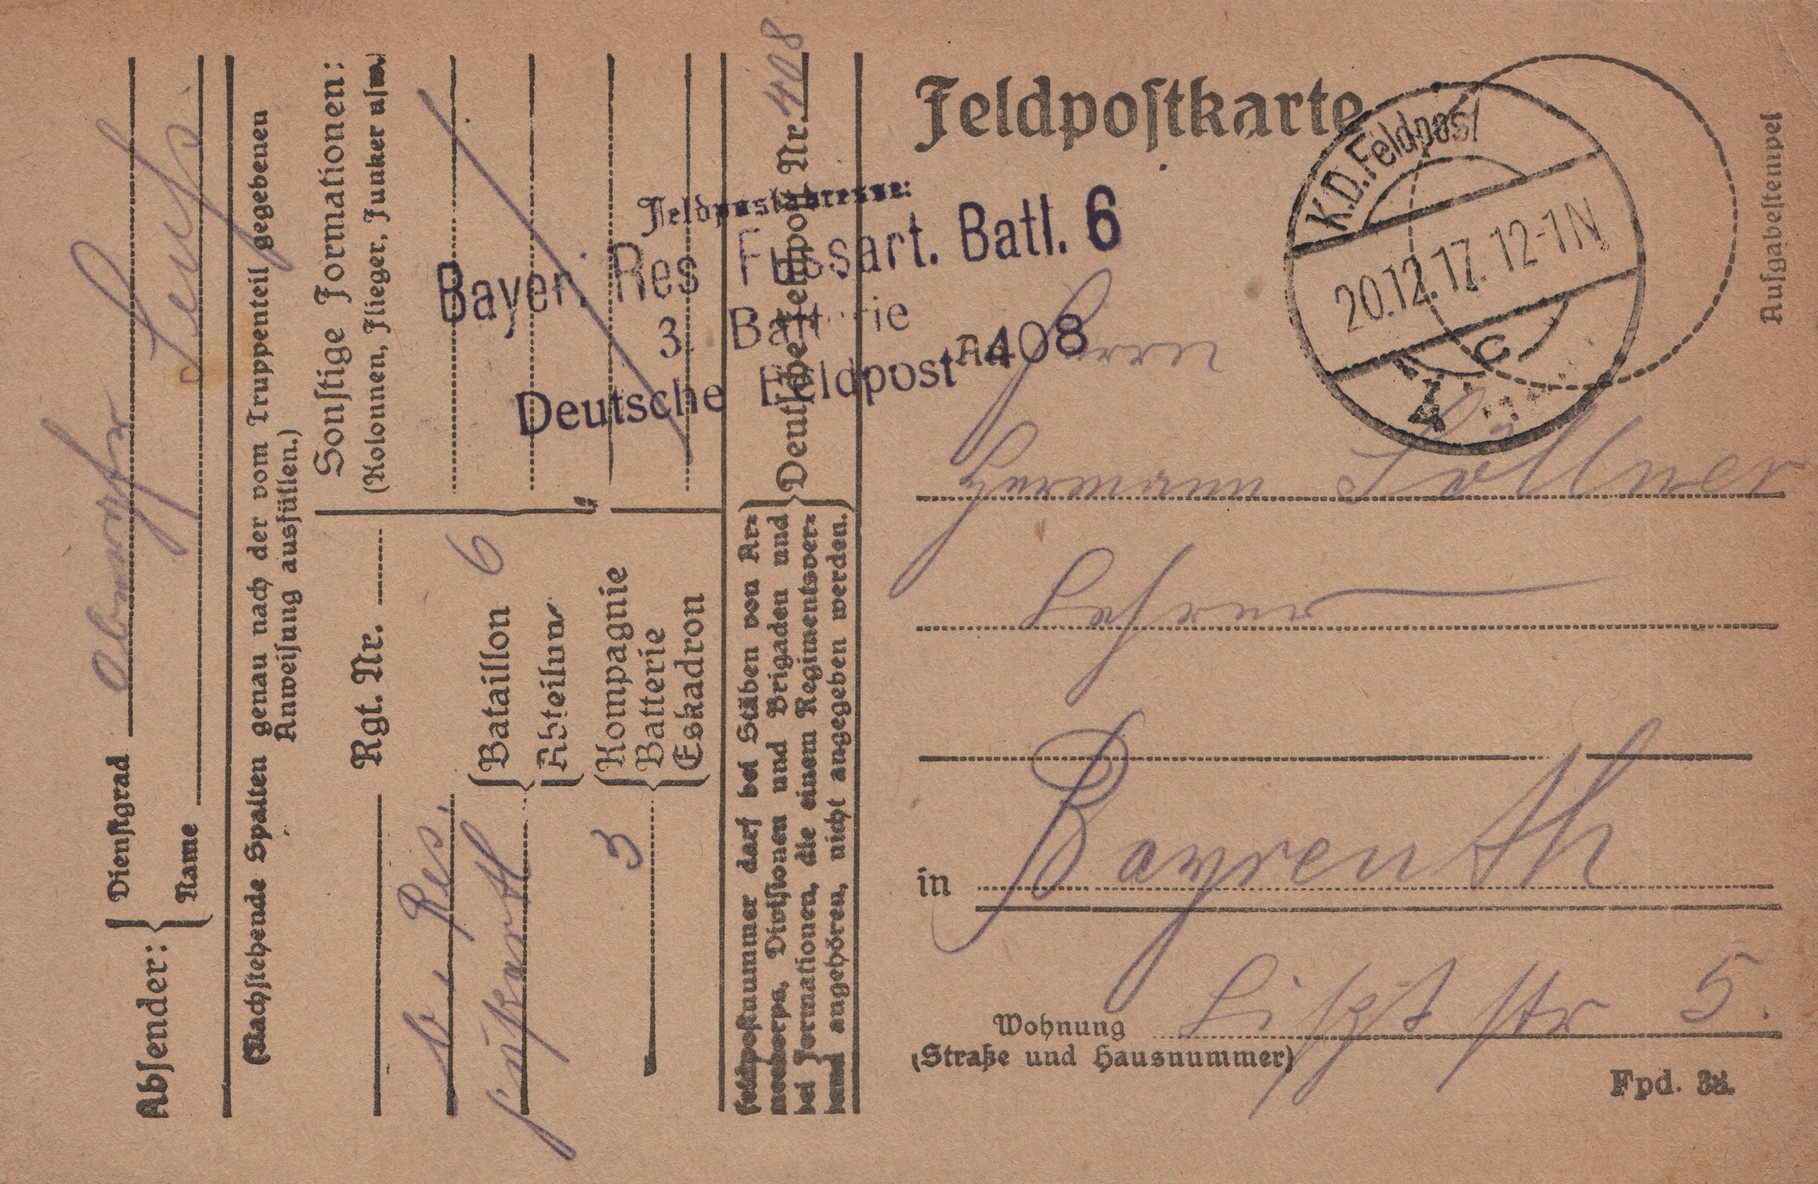 Absender:
Dienstgrad
Name
(Nachstehende Spalten genau nach der vom Truppenteil gegebenen
Anweisung ausfüllen.)
Sonstige Formationen:
(Kolonnen, Flieger, Funker usw.)
Rgt. Nr.
b. Res.
Fußartl
Bataillon 6
Abteilung
Kompagnie
Batterie 3
Eskadron
Deutsche Feldpost Nr. 408
Feldpostnummer darf bei Stäben von Ar=
meekorps, Divisionen und Brigaden und
bei Formationen, die einem Regimentsver=
band angehören, nicht angegeben werden.
Feldpostadresse:
Bayer. Res Fussart. Batl. 6
3. Batterie
Deutsche Feldpost 408
Feldpostkarte
K.D. Feldpost
20.12.17. 12-1N
c
Aufgabestempel
An Herrn
Hermann Söllner
Lehrer
in Bayreuth
Wohnung Lisztstr 5.
(Straße und Hausnummer)
Fpd. 38.